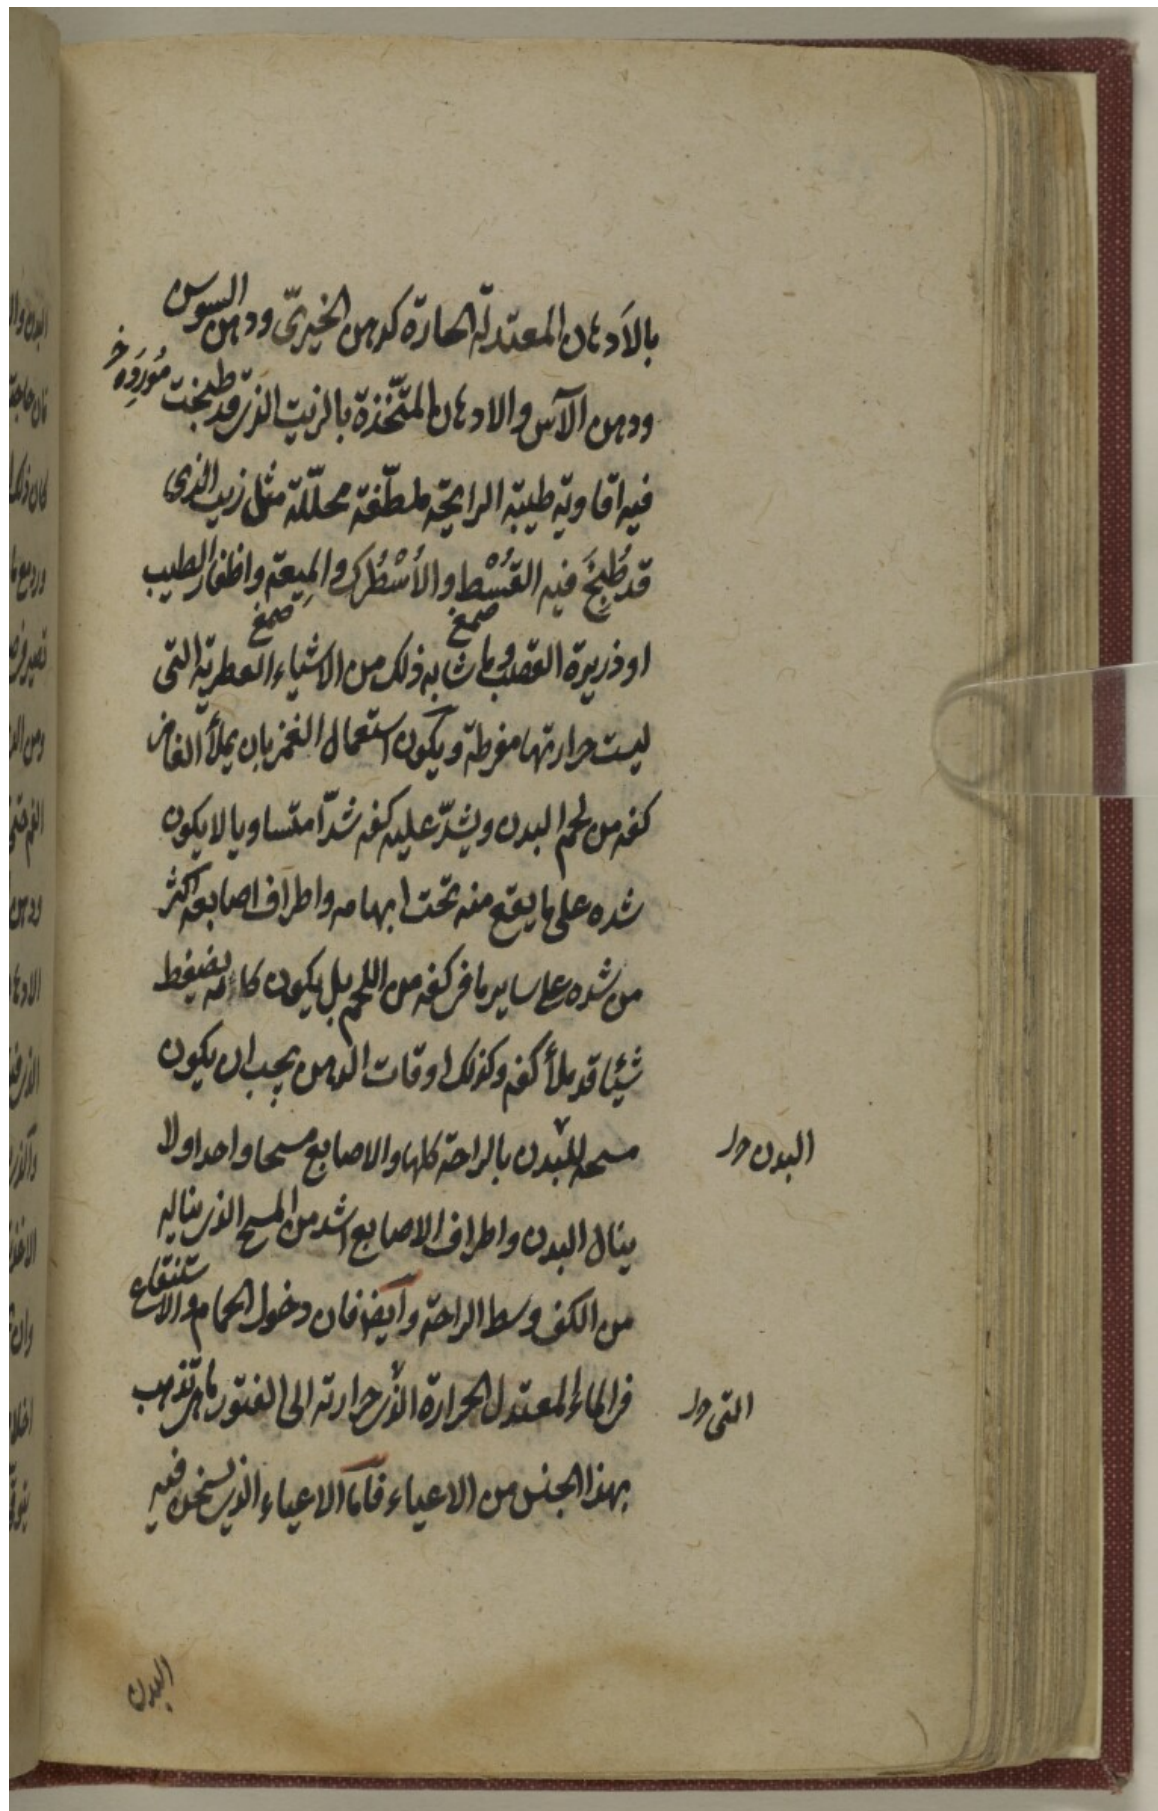 بالآدهان المعتدلة الحارة كدهن الخيريّ ودهن السوسن
ودهن الآس والادهان المتّخذة بالزيت الذى قد طبخت
فيه افاويه طيبة الرايحة ملطّفة محلّلة مثل زيت الذى
قد طُبِخَ فيه القُسْط والأُسْطُرك والمِيعة واظفار الطيب
صمغ صمغ
او ذريرة القصب وما شابه ذلك من الاشياء العطرية التى
ليست حرارتها مفرطة ويكون استعمال الغمز بان يملأ الغامز
كفه من لحم البدن ويشدّ عليه كفه شدّا متساويا لا يكون
شده على ما يقع منه تحت ابهامه واطراف اصابعه اكثر
من شده على ساير ما فى كفه من اللحم بل يكون كانه يضغط
شيئا قد ملأ كفه وكذلك اوقات الدهن يجب ان يكون
مسحه للبدن بالراحة كلها والاصابع مسحا واحدا ولا
البدن
ينال البدن واطراف الاصابع اشد من المسح الذى يناله
من الكف وسط الراحة وآيضا فان دخول الحمام والاستنقاع
فى الماء المعتدل الحرارة الذى حرارته الى الفتور ما هى تذهب
التى
بهذا الجنس من الاعياء فآما الاعياء الذى يسخن فيه
البدن